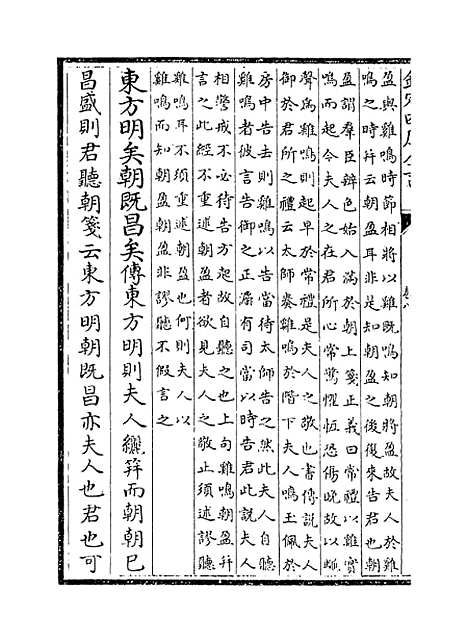 盈與雞鳴時節相將以雞既鳴知朝將盈故夫人於雞
鳴之時并云朝盈耳非是知朝盈之後復來告君也朝
盈謂羣臣辨色始入滿於朝上箋正義曰常禮以雞實
鳴而起今夫人之在君所心常驚懼恒恐傷晚故以蠅
聲為雞鳴則起早於常禮是夫人之敬也書傳說夫人
御於君所之禮云太師奏雞鳴於階下夫人鳴玉佩於
房中告去則雞鳴以告當待太師告之然此夫人自聽
雞鳴者彼言告御之正灋有司當以時告君此說夫人
相警戒不必待告方起故自聽之也上句雞鳴朝盈并
言之此經不重述朝盈者欲見夫人之敬止須述謬聽
雞鳴耳不須重述朝盈也何則夫人以
雞鳴而知朝盈朝盈非謬聽不假言之
東方明矣朝既昌矣傳東方明則夫人纚笄而朝朝已
昌盛則君聽朝箋云東方明朝既昌亦夫人也君也可